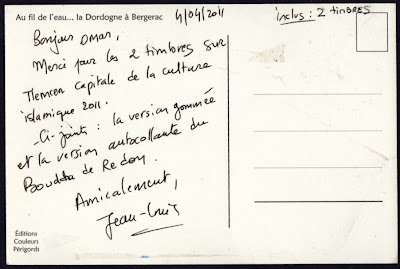 Au fil de l'eau... la Dordogne à Bergerac
4/04/2011
inclus : 2 timbres
Bonjour Omar,
Merci pour les 2 timbres sur
Tlemcen capitale de la culture
islamique 2011.
-Ci-joints : la version gommée
et la version autocollante du
Bouddha de Redon.
Amicalement,
Jean-Louis
Éditions
Couleurs
Périgords